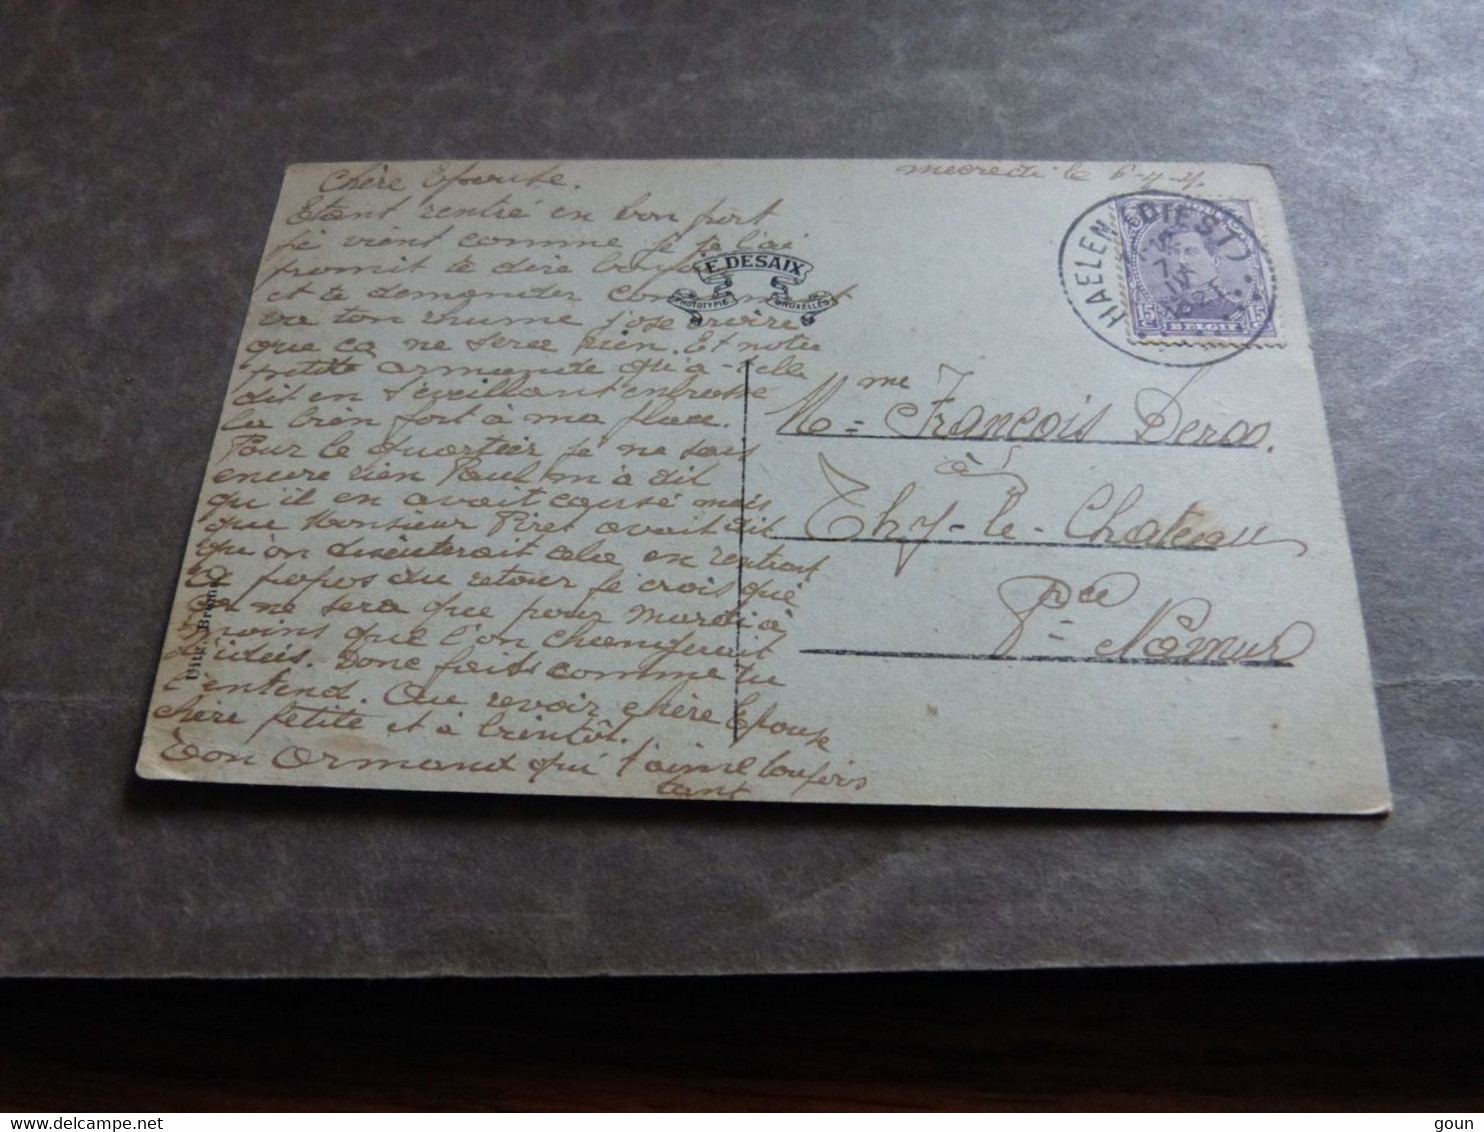 Chère Epouse.
Etant rentré en bon port
je vient comme je te l'ai
promit te dire
et te demander comment
va ton rhume j'ose croire
que ça ne sera rien. Et notre
petite armande qu'a-t-elle
dit en s'éveillant embrasse
la bien fort à ma place.
Pour le quartier je ne sais
encore rien Paul m'a dit
qu'il en avait causé mais
que Monsieur Piret avait dit
qu'on discuterait cela en rentrant
à propos du retour je crois que
ça ne sera que pour mardi à
moins que l'on changerait
d'idées. Donc faits comme tu
l'entend. Au revoir chère Epouse
chère petite et à bientôt.
Ton Armand qui t'aime toujours
tant
Uitg.
E. DESAIX
PHOTOTYPIE BRUXELLES
mecredi le
HAELEN (DIEST)
7 IV
15 BELGIE 15
Mme François Deroo.
à
Thy-le-Chateau
Pce Namur
goun
delcampe.net